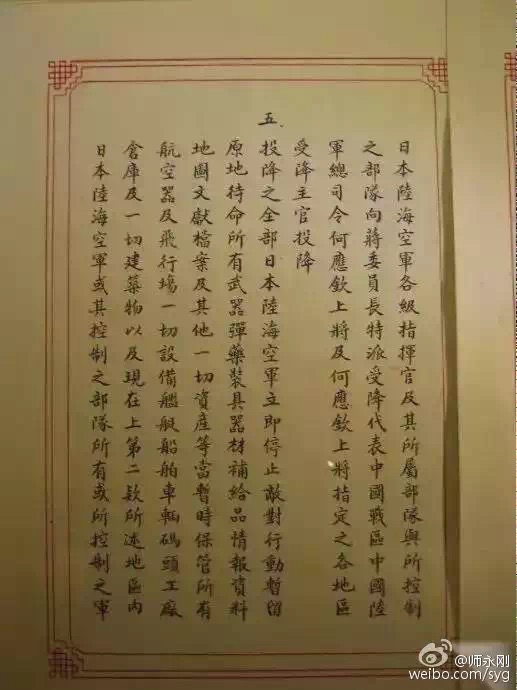 日本陸海空軍各級指揮官及其所屬部隊與所控制
之部隊向蔣委員長特派受降代表中國戰區中國陸
軍總司令何應欽上將及何應欽上將指定之各地區
受降主官投降
五、投降之全部日本陸海空軍立即停止敵對行動暫留
原地待命所有武器彈藥裝具器材補給品情報資料
地圖文獻檔案及其他一切資產等當暫時保管所有
航空器及飛行場一切設備艦艇船舶車輛碼頭工廠
倉庫及一切建築物以及現在上第二款所述地區內
日本陸海空軍或其控制之部隊所有或所控制之軍
@师永刚
weibo.com/syg